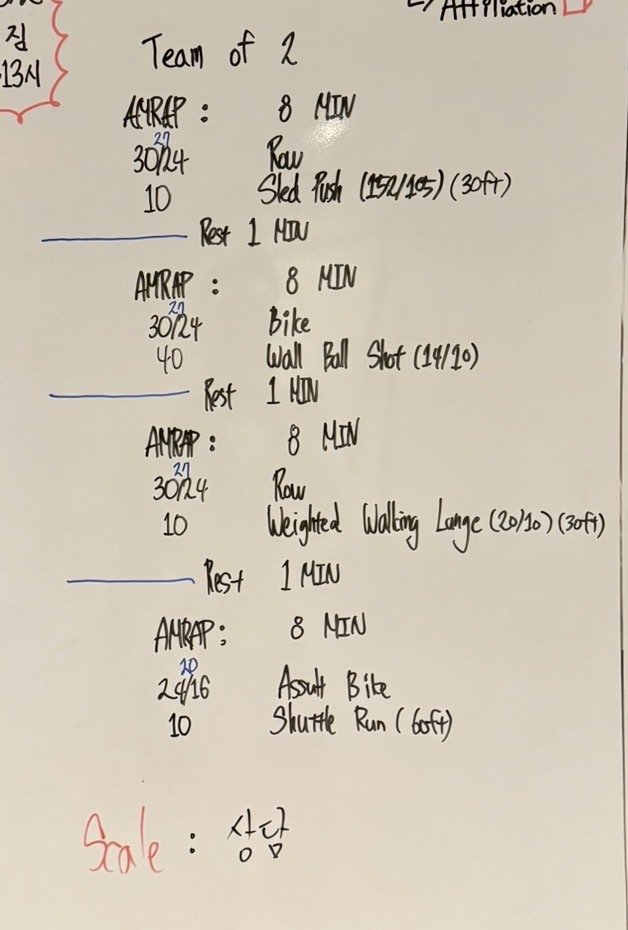 Affiliation
짐
13시
Team of 2
AMRAP : 8 MIN
27
30/24 Row
10 Sled Push (152/105) (30ft)
Rest 1 MIN
AMRAP : 8 MIN
27
30/24 Bike
40 Wall Ball Shot (14/10)
Rest 1 MIN
AMRAP : 8 MIN
27
30/24 Row
10 Weighted Walking Lunge (20/10) (30ft)
Rest 1 MIN
AMRAP : 8 MIN
20
24/16 Assult Bike
10 Shuttle Run (60ft)
Scale : 상담